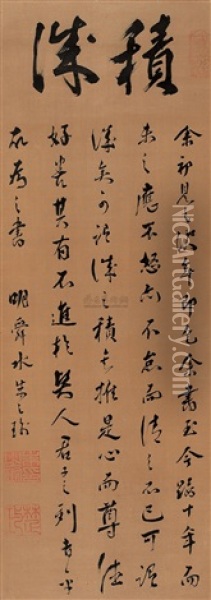 積誠
余初見即乞余書至今踰十年而
未之應不怒亦不怠而請之不已可謂
誠矣可謂誠之積矣推是心而尊德
好善其有不進於賢人君子之列者乎
故為之書 明舜水朱之瑜